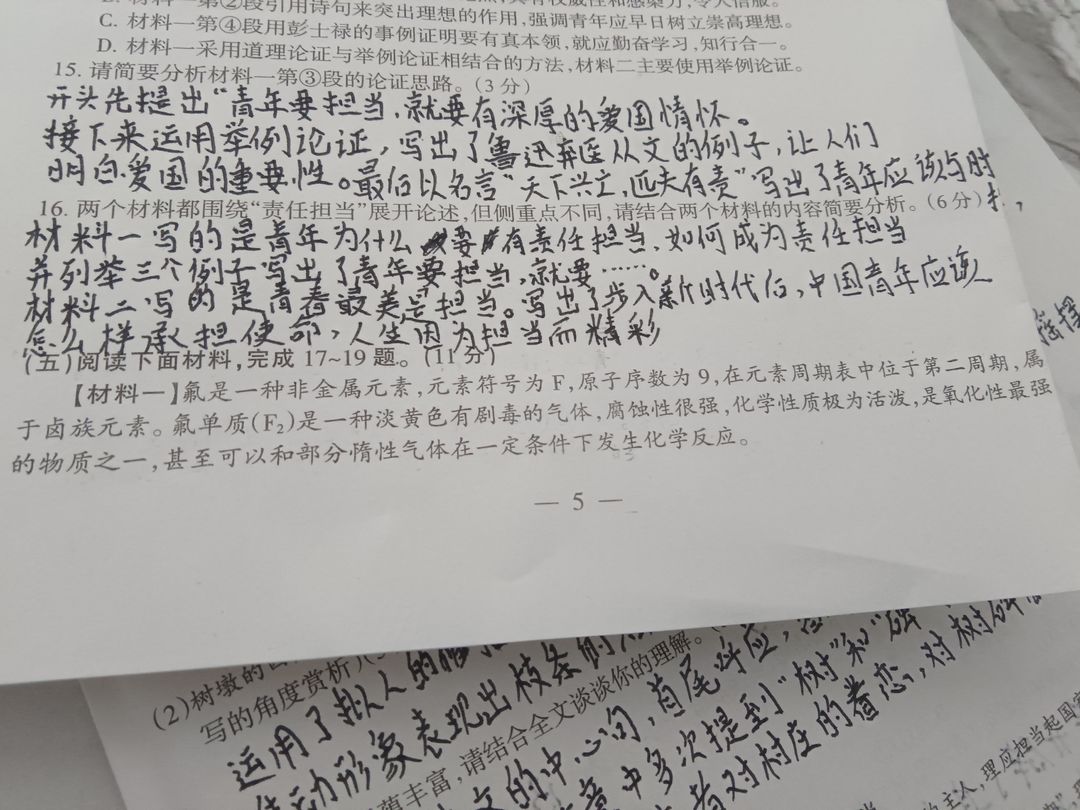 B. 材料一第②段引用诗句来突出理想的作用,强调青年应早日树立崇高理想。
C. 材料一第④段用彭士禄的事例证明要有真本领,就应勤奋学习,知行合一。
D. 材料一采用道理论证与举例论证相结合的方法,材料二主要使用举例论证。
15. 请简要分析材料一第③段的论证思路。(3分)
开头先提出“青年要担当,就要有深厚的爱国情怀。
接下来运用举例论证,写出了鲁迅弃医从文的例子,让人们
明白爱国的重要性。最后以名言“天下兴亡,匹夫有责”写出了青年应该与时
16. 两个材料都围绕“责任担当”展开论述,但侧重点不同,请结合两个材料的内容简要分析。(6分)
材料一写的是青年为什么要有责任担当、如何成为责任担当
并列举三个例子写出了青年要担当,就要……。
材料二写的是青春最美是担当。写出了步入新时代后,中国青年应该
怎么样承担使命,人生因为担当而精彩
(五)阅读下面材料,完成17~19题。(11分)
【材料一】氟是一种非金属元素,元素符号为F,原子序数为9,在元素周期表中位于第二周期,属
于卤族元素。氟单质(F₂)是一种淡黄色有剧毒的气体,腐蚀性很强,化学性质极为活泼,是氧化性最强
的物质之一,甚至可以和部分惰性气体在一定条件下发生化学反应。
— 5 —
摇摆
(2)树墩的
写的角度赏析)
运用了拟人的
动形象表现出枝条的
丰富,请结合全文谈谈你的理解。
文的中心句,首尾呼应,
章中多次提到“树”和“
有对村庄的眷恋,对树
的主人,理应担当起国